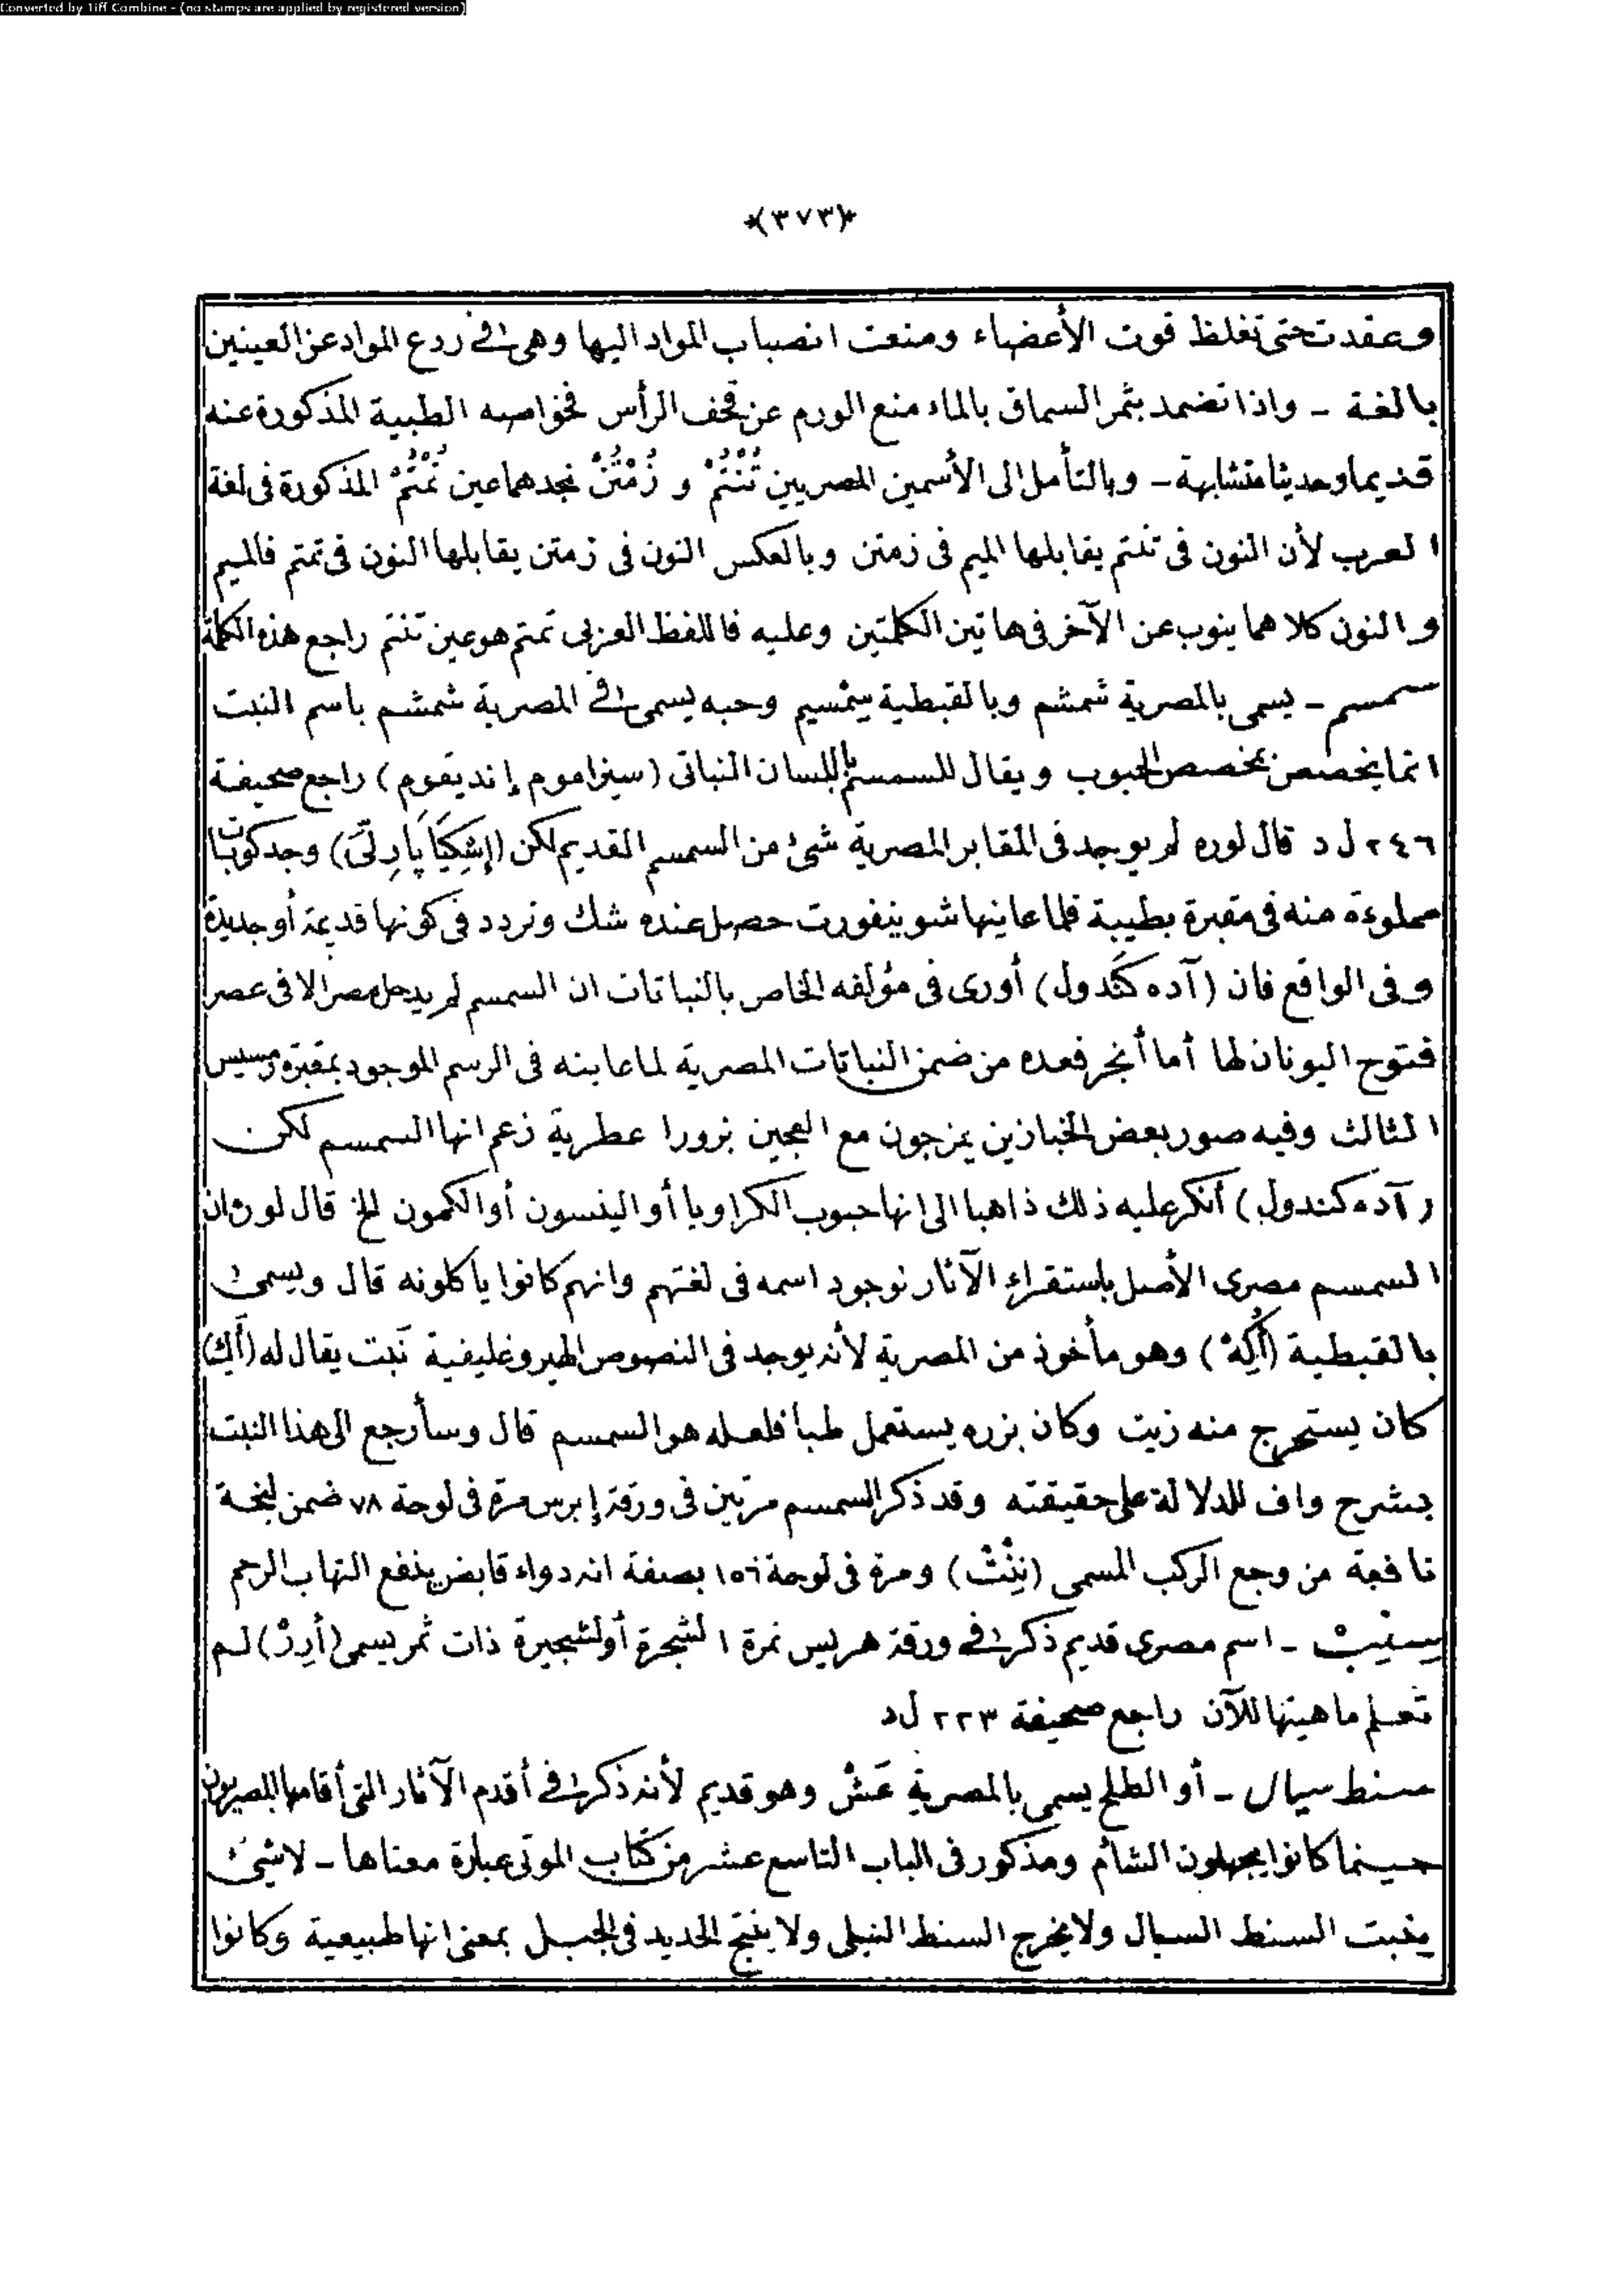 Converted by Tiff Combine - (no stamps are applied by registered version)
*(٣٧٣)*
وعقدت حتى تغلظ قوت الأعضاء ومنعت انصباب المواد اليها وهى فى ردع المواد عن العينين
بالغة - واذا تضمد بثمر السماق بالماء منع الورم عن قحف الرأس فخواصه الطبية المذكورة عنه
قديما وحديثا متشابهة - وبالتأمل الى الأسمين المصريين تُنْتُمْ و زُمْتُنْ نجدهما عين تُمْتُمْ المذكورة فى لغة
العرب لأن النون فى تنتم يقابلها الميم فى زمتن وبالعكس النون فى زمتن يقابلها النون فى تمتم فالميم
والنون كلاهما ينوب عن الآخر فى هاتين الكلمتين وعليه فاللفظ العربى تمتم هو عين تنتم راجع هذه الكلمة
سمسم - يسمى بالمصرية شمشم وبالقبطية سِمْسيم وحبه يسمى فى المصرية شمشم باسم النبت
انما يخصص بمخصص الحبوب ويقال للسمسم باللسان النباتى (سيزاموم إنديقوم) راجع صحيفة
٢٤٦ ل د قال لوره لم يوجد فى المقابر المصرية شئ من السمسم القديم لكن (إشِكِيَا پَارِلِّى) وجد كوبا
مملوءة منه فى مقبرة بطيبة فلما عاينها شوينفورت حصل عنده شك وتردد فى كونها قديمة أو جديدة
وفى الواقع فان (آده كَندول) أورى فى مؤلفه الخاص بالنباتات ان السمسم لم يدخل مصر الا فى عصر
فتوح اليونان لها أما أنجر فعده من ضمن النباتات المصرية لما عاينه فى الرسم الموجود بمقبرة رمسيس
الثالث وفيه صور بعض الخبازين يمزجون مع العجين بزورا عطرية زعم انها السمسم لكن
(آده كندول) أنكر عليه ذلك ذاهبا الى انها حبوب الكراويا أو الينسون أو الكمون الخ قال لوره ان
السمسم مصرى الأصل باستقراء الآثار لوجود اسمه فى لغتهم وانهم كانوا ياكلونه قال ويسمى
بالقبطية (أُكِهْ) وهو مأخوذ من المصرية لأنه يوجد فى النصوص الهيروغليفية نبت يقال له (أَكِ)
كان يستخرج منه زيت وكان بزره يستعمل طبا فلعله هو السمسم قال وسأرجع الى هذا النبت
بشرح واف للدلالة على حقيقته وقد ذكر السمسم مرتين فى ورقة إبرس مرة فى لوحة ٧٨ ضمن لبخة
نافعة من وجع الركب المسمى (نِثِثْ) ومرة فى لوحة ١٥٦ بصفة انه دواء قابض ينفع التهاب الرحم
سِسْنِبْ - اسم مصرى قديم ذكر فى ورقة هريس نمرة ١ لشجرة أو لشجيرة ذات ثمر يسمى (أرِرْ) لم
تعلم ماهيتها للآن راجع صحيفة ٢٢٣ ل د
سنط سيال - أو الطلح يسمى بالمصرية عَشْ وهو قديم لأنه ذكر فى أقدم الآثار التى أقامها المصريون
حينما كانوا يجهلون الشأم ومذكور فى الباب التاسع عشر من كتاب الموتى عبارة معناها - لا شئ
ينبت السنط السيال ولا يخرج السنط النيلى ولا ينتج الحديد فى الجبل بمعنى انها طبيعية وكانوا